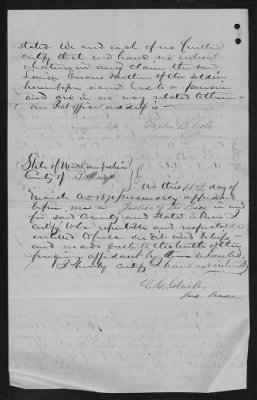 stated. We and each of us further
certify that we have no interest
whatever in any claim the said
Louisa Evans Mother of the soldier
hereinbefore named has to a pension
and are in no way related to them
Our Post office address is —
State of New Hampshire
County of
On this 21st day of
March A.D. 1871 personally appeared
before me a Justice of the Peace in and
for said County and State
certify to be reputable and respectable
entitled to full credit and belief
and made oath to the truth of the
foregoing affidavit by them subscribed
I further certify I have no interest
Clark
Jus. Peace